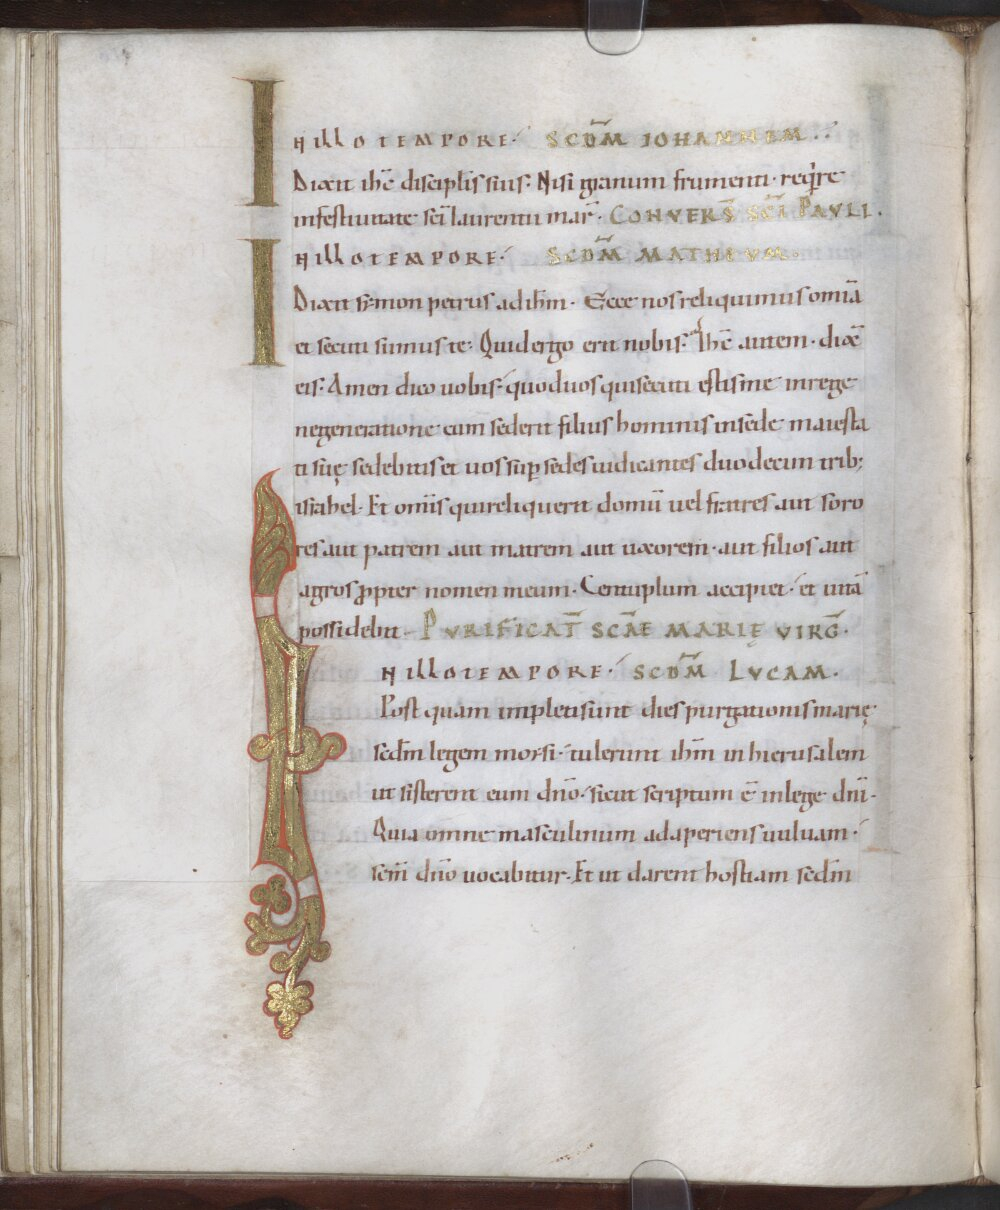 IN ILLO TEMPORE· SCDM̄ IOHANNEM·
Dixit ihc̄ discipl̄is suis· Nisi granum frumenti· req̄re
in festiuitate sc̄i laurentii mar̄· CONUERS̄ SC̄I PAULI·
IN ILLO TEMPORE· SCDM̄ MATHEUM·
Dixit sȳmon petrus ad ihm̄· Ecce nos reliquimus omīa
et secuti sumus te· Quid ergo erit nobis· Ihc̄ autem· dix̄
eis· Amen dico uobis· quod uos qui secuti estis me in rege
negeneratione cum sederit filius hominis in sede maiesta
tis suę sedebitis et uos sup̄ sedes iudicantes duodecim trib;
israhel· Et omīs qui reliquerit domū uel fratres aut soro
res aut patrem aut matrem aut uxorem· aut filios aut
agros ꝓpter nomen meum· Centuplum accipiet· et uitā
possidebit· PURIFICAT̄ SCĀE MARIĘ VIRḠ·
IN ILLO TEMPORE· SCDM̄ LUCAM·
Post quam impleti sunt dies purgationis marię
secdm̄ legem morsi· tulerunt ihm̄ in hierusalem
ut sisterent eum dn̄o· sicut scriptum ē in lege dn̄i·
Quia omne masculinum adaperiens uuluam·
sc̄m dn̄o uocabitur· Et ut darent hostiam secdm̄